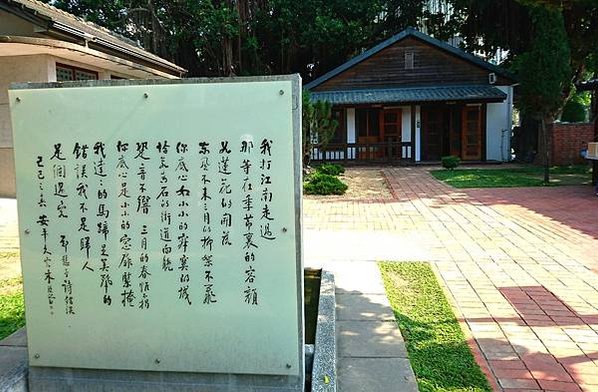 我打江南走過
那等在季節裏的容顏
如蓮花的開落
東風不來三月的柳絮不飛
你底心如小小的寂寞的城
恰若青石的街道向晚
跫音不響 三月的春帷不揭
你底心是小小的窗扉緊掩
我達々的馬蹄是美麗的
錯誤 我不是歸人
是個過客 鄭愁予詩錯誤